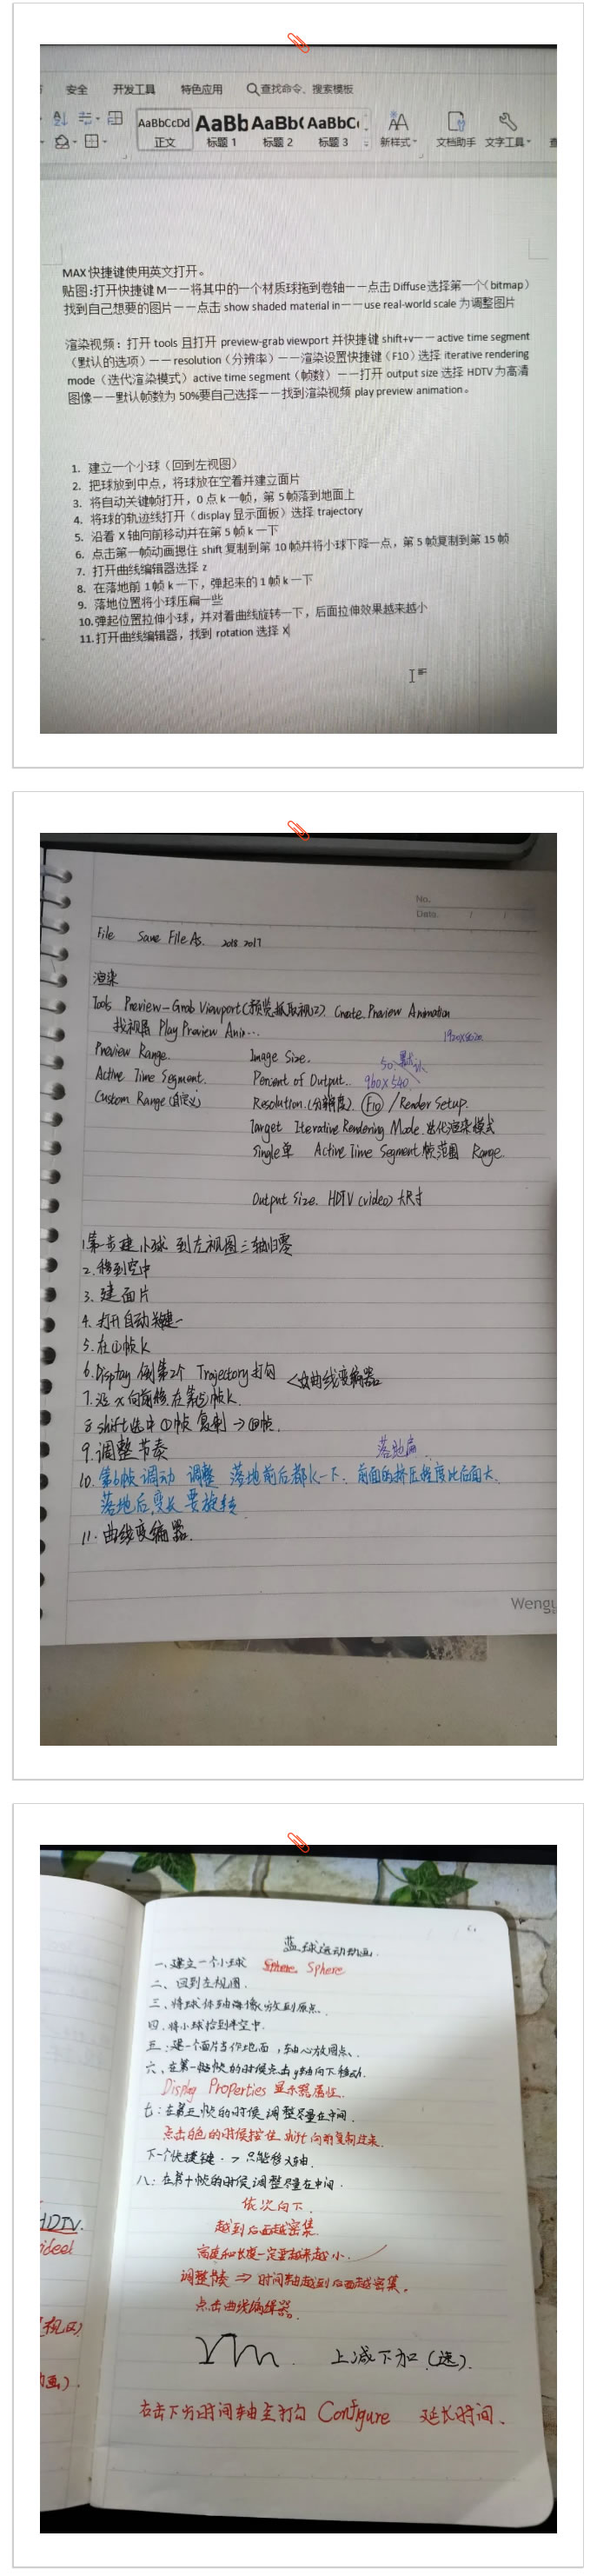 安全 开发工具 特色应用 查找命令、搜索模板
AaBbCcDd AaBb AaBb( AaBbC
正文 标题 1 标题 2 标题 3 新样式 文档助手 文字工具
MAX 快捷键使用英文打开。
贴图:打开快捷键 M——将其中的一个材质球拖到卷轴——点击 Diffuse 选择第一个(bitmap)
找到自己想要的图片——点击 show shaded material in——use real-world scale 为调整图片
渲染视频：打开 tools 且打开 preview-grab viewport 并快捷键 shift+v—— active time segment
（默认的选项）——resolution（分辨率）——渲染设置快捷键（F10）选择 iterative rendering
mode（迭代渲染模式）active time segment（帧数）——打开 output size 选择 HDTV 为高清
图像——默认帧数为 50%要自己选择——找到渲染视频 play preview animation。
1. 建立一个小球（回到左视图）
2. 把球放到中点，将球放在空着并建立面片
3. 将自动关键帧打开，0 点 k 一帧，第 5 帧落到地面上
4. 将球的轨迹线打开（display 显示面板）选择 trajectory
5. 沿着 X 轴向前移动并在第 5 帧 k 一下
6. 点击第一帧动画摁住 shift 复制到第 10 帧并将小球下降一点，第 5 帧复制到第 15 帧
7. 打开曲线编辑器选择 z
8. 在落地前 1 帧 k 一下，弹起来的 1 帧 k 一下
9. 落地位置将小球压扁一些
10.弹起位置拉伸小球，并对着曲线旋转一下，后面拉伸效果越来越小
11.打开曲线编辑器，找到 rotation 选择 X
No.
Date.
File Save File As. 2018 2017
渲染
Tools Preview-Grab Viewport(预览抓取视口). Create Preview Animation
找视屏 Play Preview Ani...
Preview Range. Image Size.
50. 默认
Active Time Segment. Percent of Output. 960×540.
Custom Range (自定义) Resolution.(分辨度). F10 / Render Setup.
Target Iterative Rendering Mode. 迭代渲染模式
Single 单 Active Time Segment 帧范围 Range
Output Size. HDTV (video) 大尺寸
1.第一步建小球 到左视图三轴归零
2.移到空中
3. 建面片
4. 打开自动关键一
5. 在①帧 k
6.Display 倒第2个 Trajectory 打勾
7. 沿 x 向前移. 在第⑤帧 K.
8 shift 选中 ①帧 复制 → ⑩帧.
9.调整节奏 落地扁.
10. 第6帧 调动 调整 落地前后都 k 一下. 前面的挤压程度比后面大.
落地后 变长 要旋转
11. 曲线变编器.
Wengu
蓝球运动动画.
一、建立一个小球 Sphere. Sphere
二、回到左视图.
三、将球体轴海像放到原点.
四、将小球抬到半空中.
五：建一个面片当作地面，轴心放圆点、
Display Properties 显示器属性.
七：在第五帧的时候调整尽量在中间.
点击白色的时候按住 shift 向前复制过来.
下一个快捷键. > 只能移 x 轴.
八：在第十帧的时候调整尽量在中间.
依次向下.
越到后面越密集.
高度和长度一定要越来越小.
调整节奏 ⇒ 时间轴越到后面越密集.
点击曲线编辑器。
上减下加 (选).
右击下方时间轴至打勾 Configure 延长时间.
HDTV.